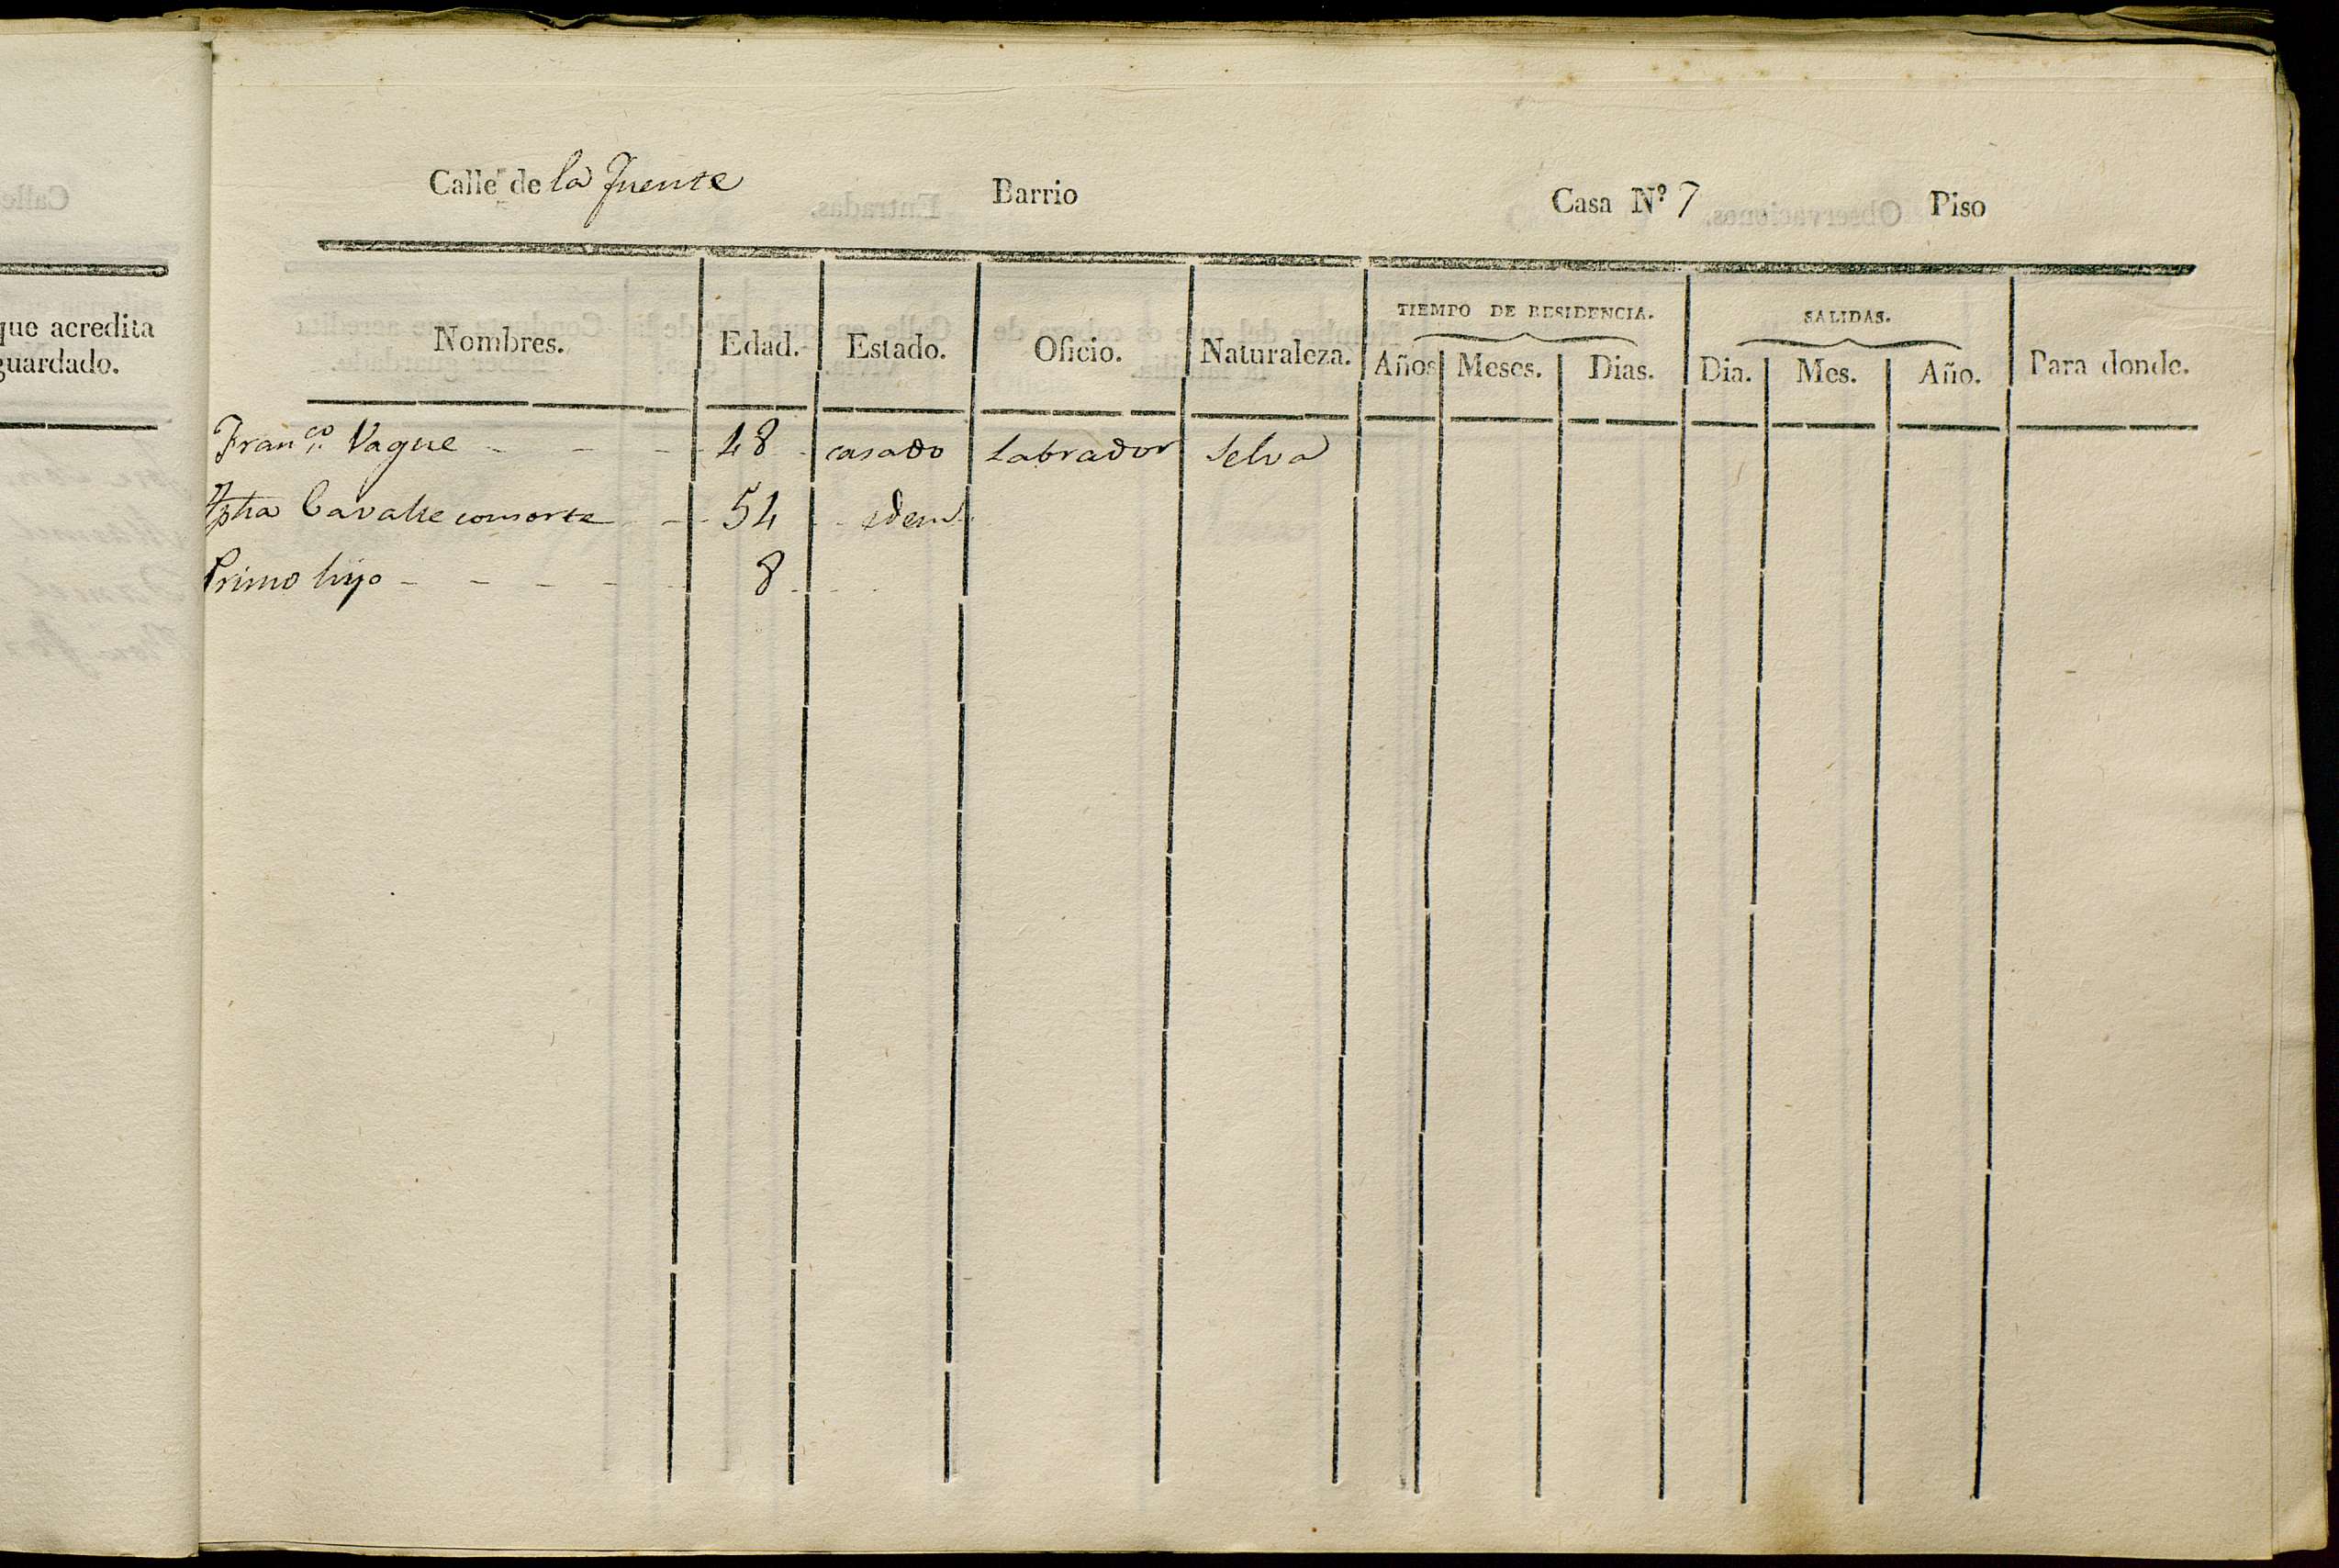 que acredita
guardado.
Calle de la Fuente Barrio Casa Nº 7 Piso
Nombres. Edad. Estado. Oficio. Naturaleza. TIEMPO DE RESIDENCIA. SALIDAS. Para donde.
Años Meses. Dias. Dia. Mes. Año.
Fran.co Vague - - - 48 casado Labrador Selva
Cavalle consorte - - 54 idem
Primo hijo - - - - - 8